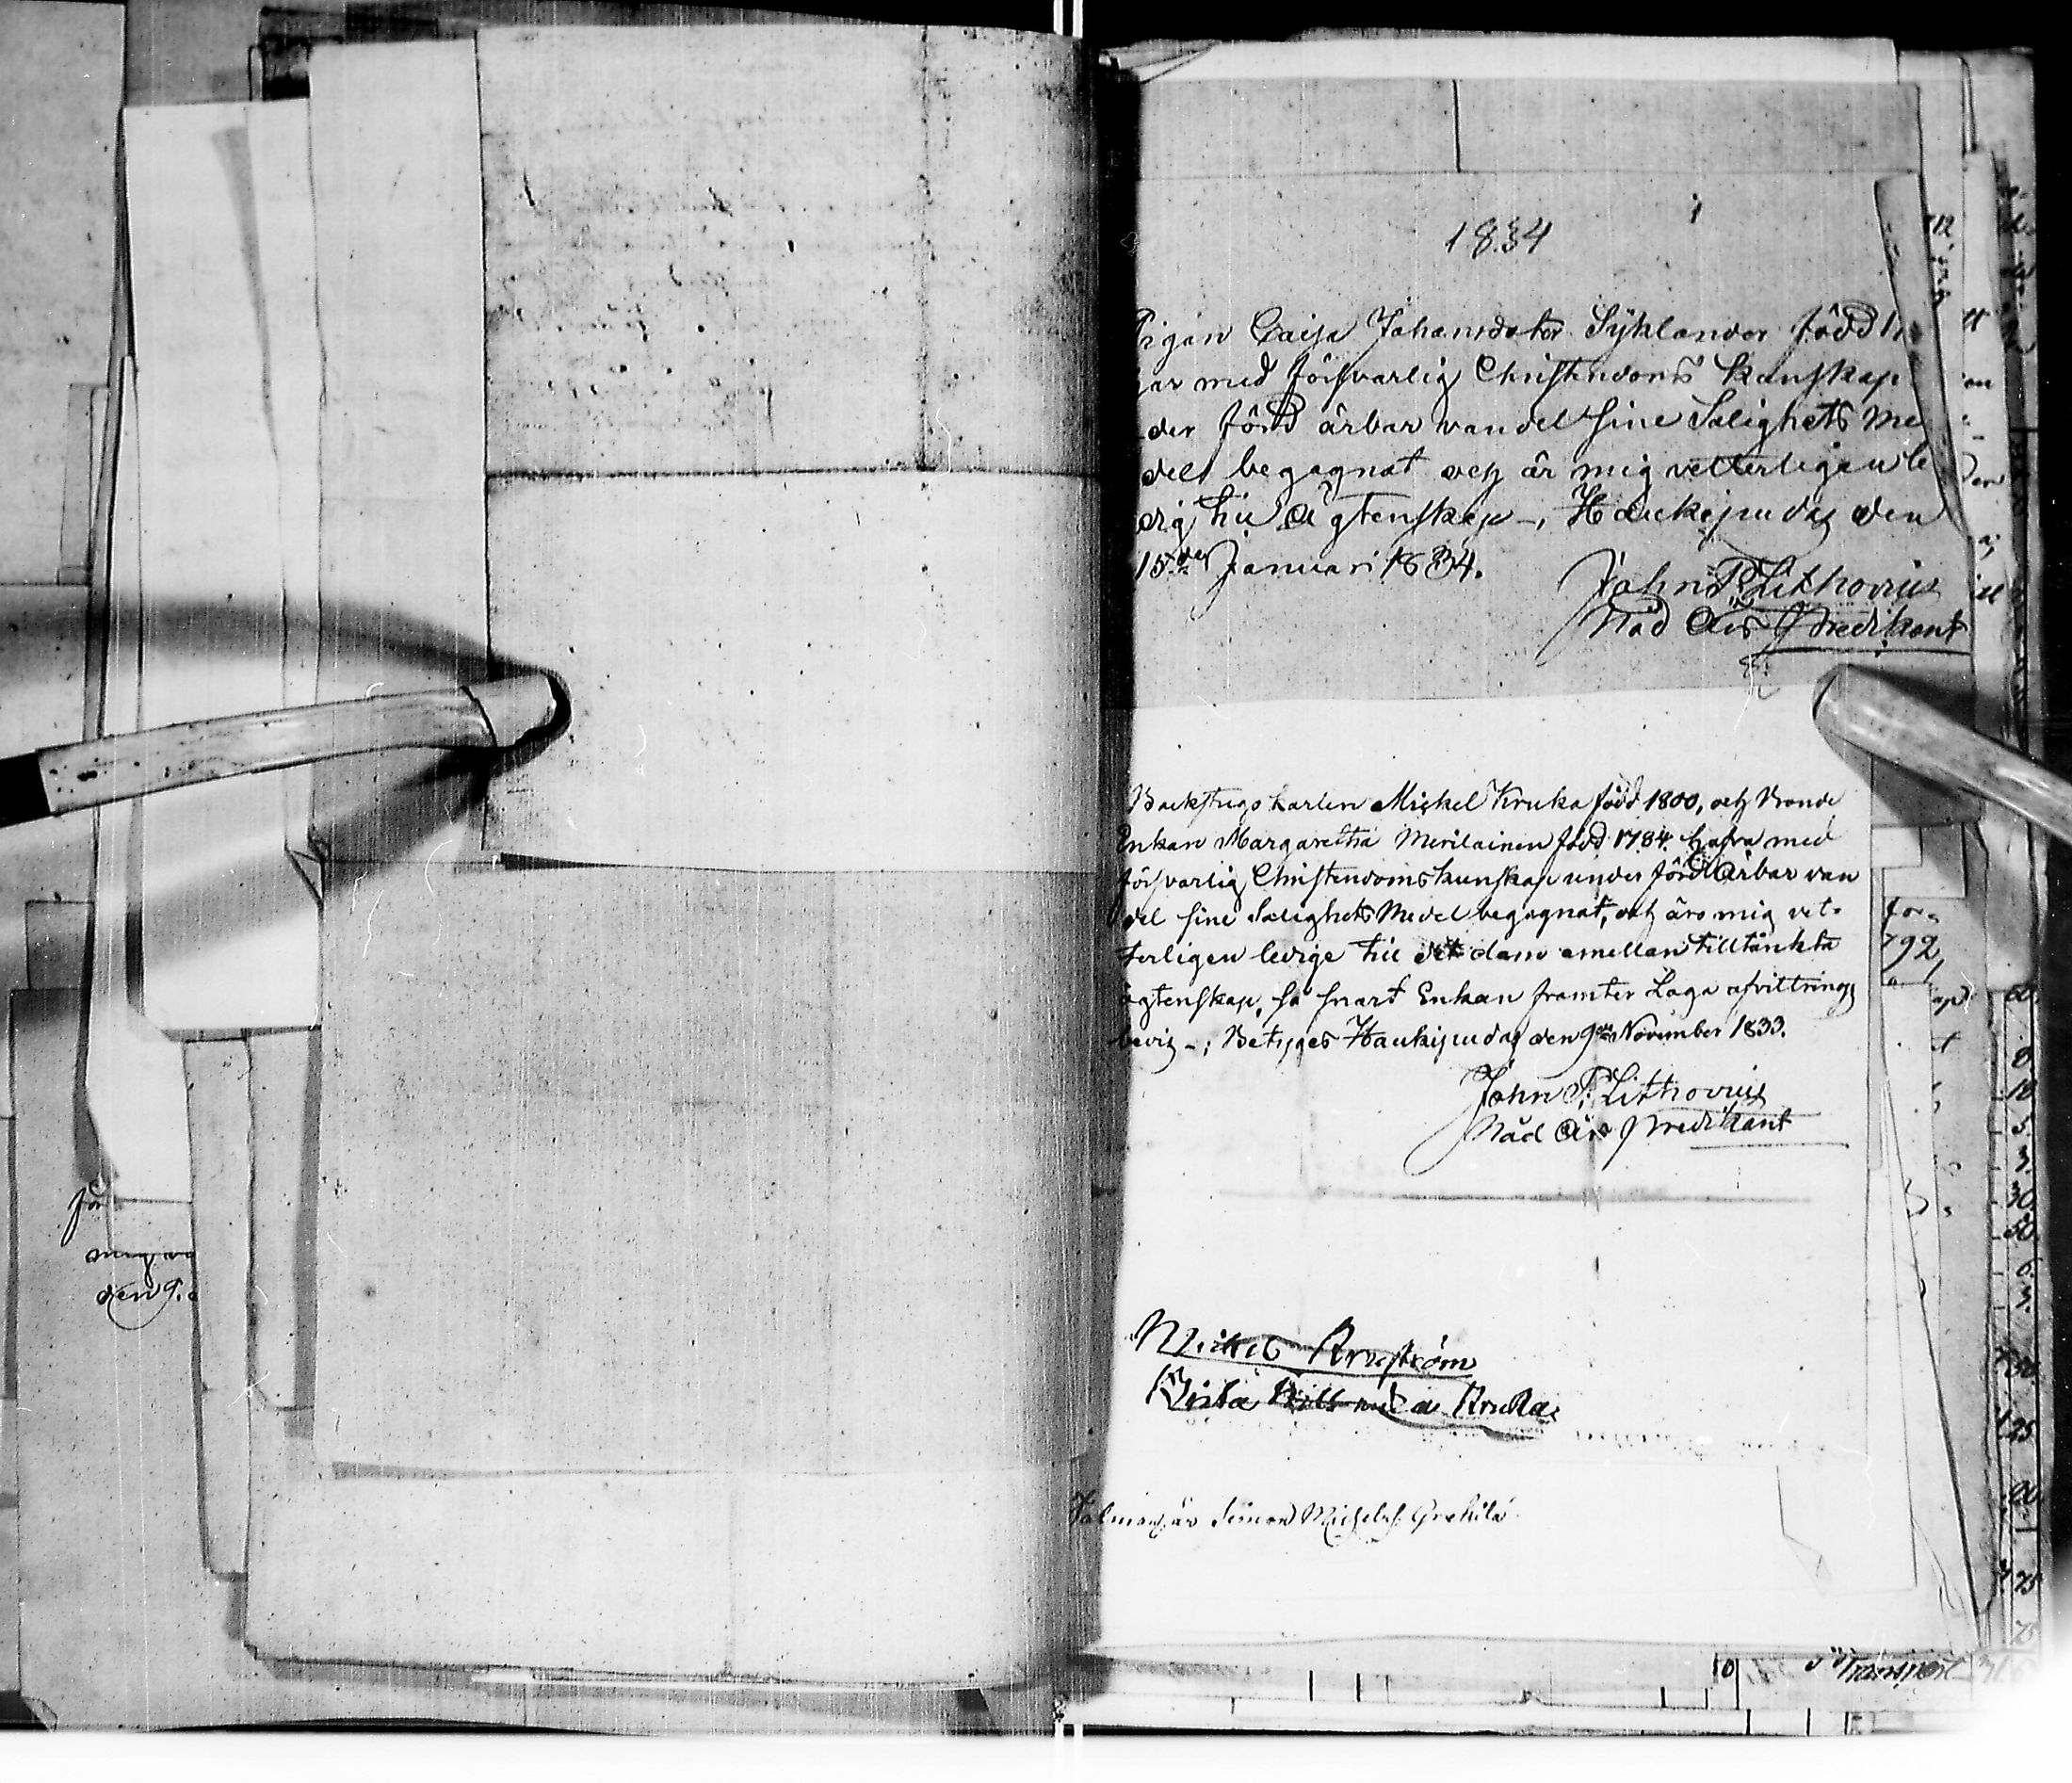 1834
Pigan Caisa Johansdoter Syklander född 1
har med försvarlig Christendoms kunskap
der förd ärbar vandel sine Salighets me
del begagnat och är mig vetterligen le
dig till ägtenskap –, Haukipudas den
15de Januari 1834.
John P: Lithovius
Nåd Års Predikant
Backstugs karlen Mickel Kruka född 1800, och Bonde
Enkan Margaretha Merilainen född 1784. hafva med
försvarlig Christendoms kunskap under förd ärbar van
del sine Salighets Medel begagnat, och äro mig vet-
terligen ledige till det dem emellan tilltänkta
ägtenskap, så snart Enkan framter Laga afvittrings
bevis –; Betyges Haukipudas den 9de November 1833.
John P: Lithovius
Nåd Års Predikant
Brita Kruka
Talman är Simon Michelss.
för
mig
den 9.
792
10
30
50
Transport